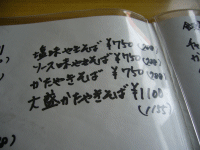 塩味やきそば ¥750
ソース味やきそば ¥750
かたやきそば ¥750
大盛かたやきそば ¥1100
(1155)